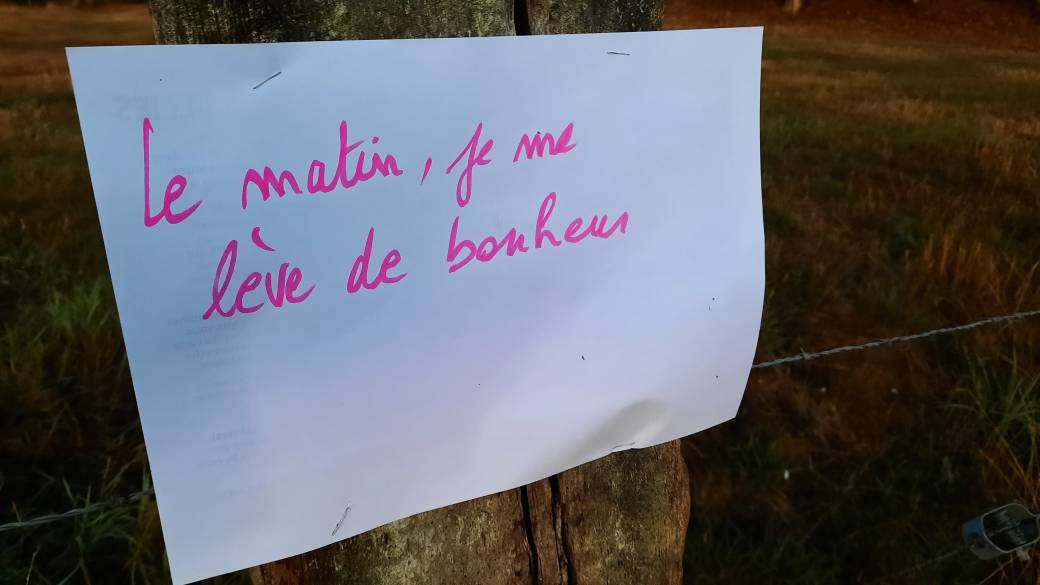 Le matin, je me
lève de bonheur